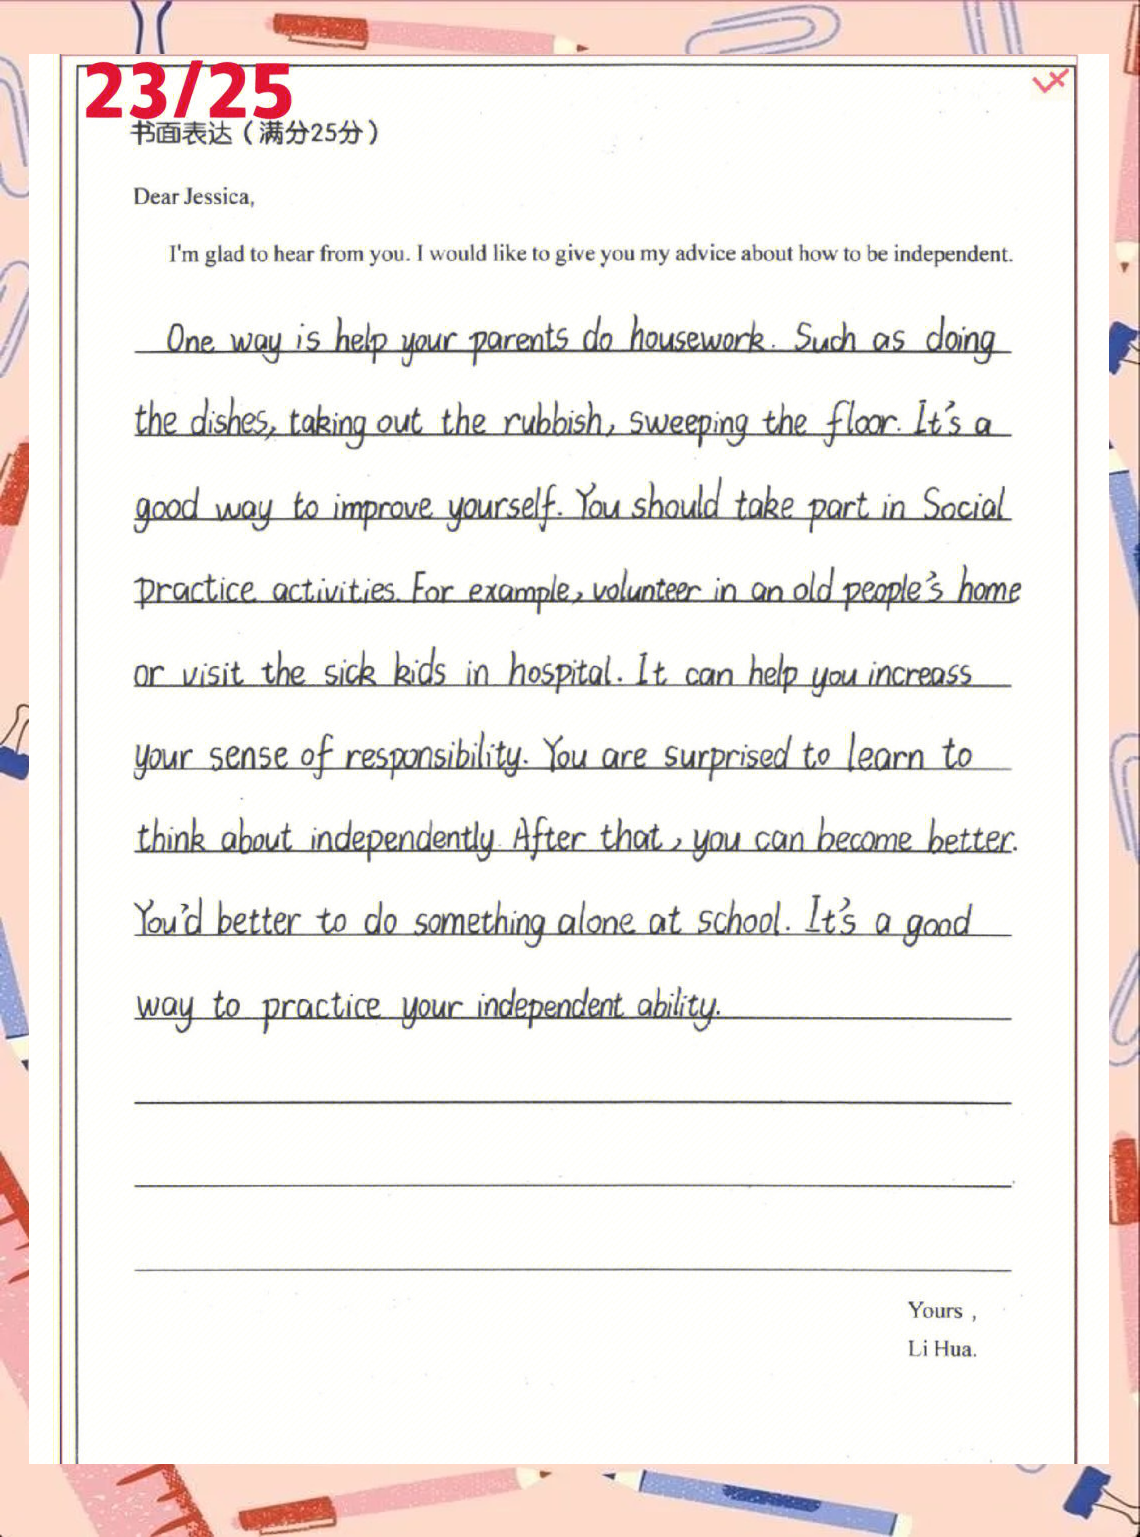 23/25
书面表达（满分25分）
Dear Jessica,
I'm glad to hear from you. I would like to give you my advice about how to be independent.
One way is help your parents do housework. Such as doing
the dishes, taking out the rubbish, sweeping the floor. It's a
good way to improve yourself. You should take part in Social
Practice activities. For example, volunteer in an old people's home
or visit the sick kids in hospital. It can help you increass
your sense of responsibility. You are surprised to learn to
think about independently. After that, you can become better.
You'd better to do something alone at school. It's a good
way to practice your independent ability.
Yours ,
Li Hua.